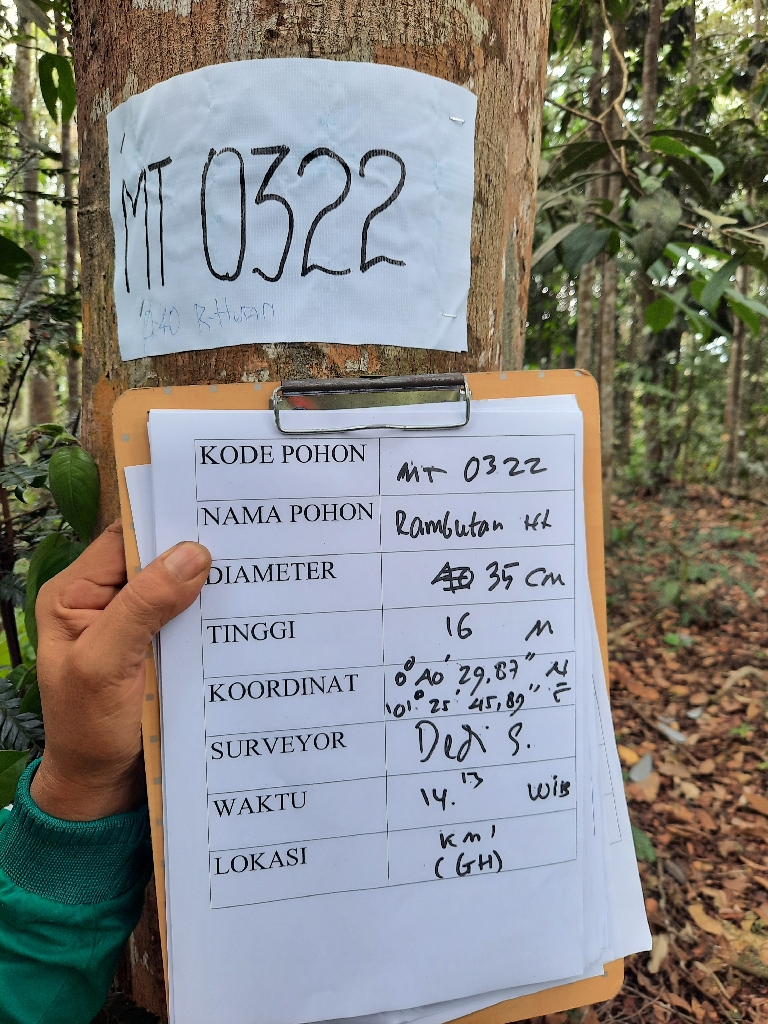 MT 0322
R. Hutan
KODE POHON MT 0322
NAMA POHON Rambutan
DIAMETER 35 cm
TINGGI 16 M
KOORDINAT 0° 40' 29,87" N
101° 25' 45,89" E
SURVEYOR Dedi S.
WAKTU 14.13 WIB
LOKASI KM 1
(GH)